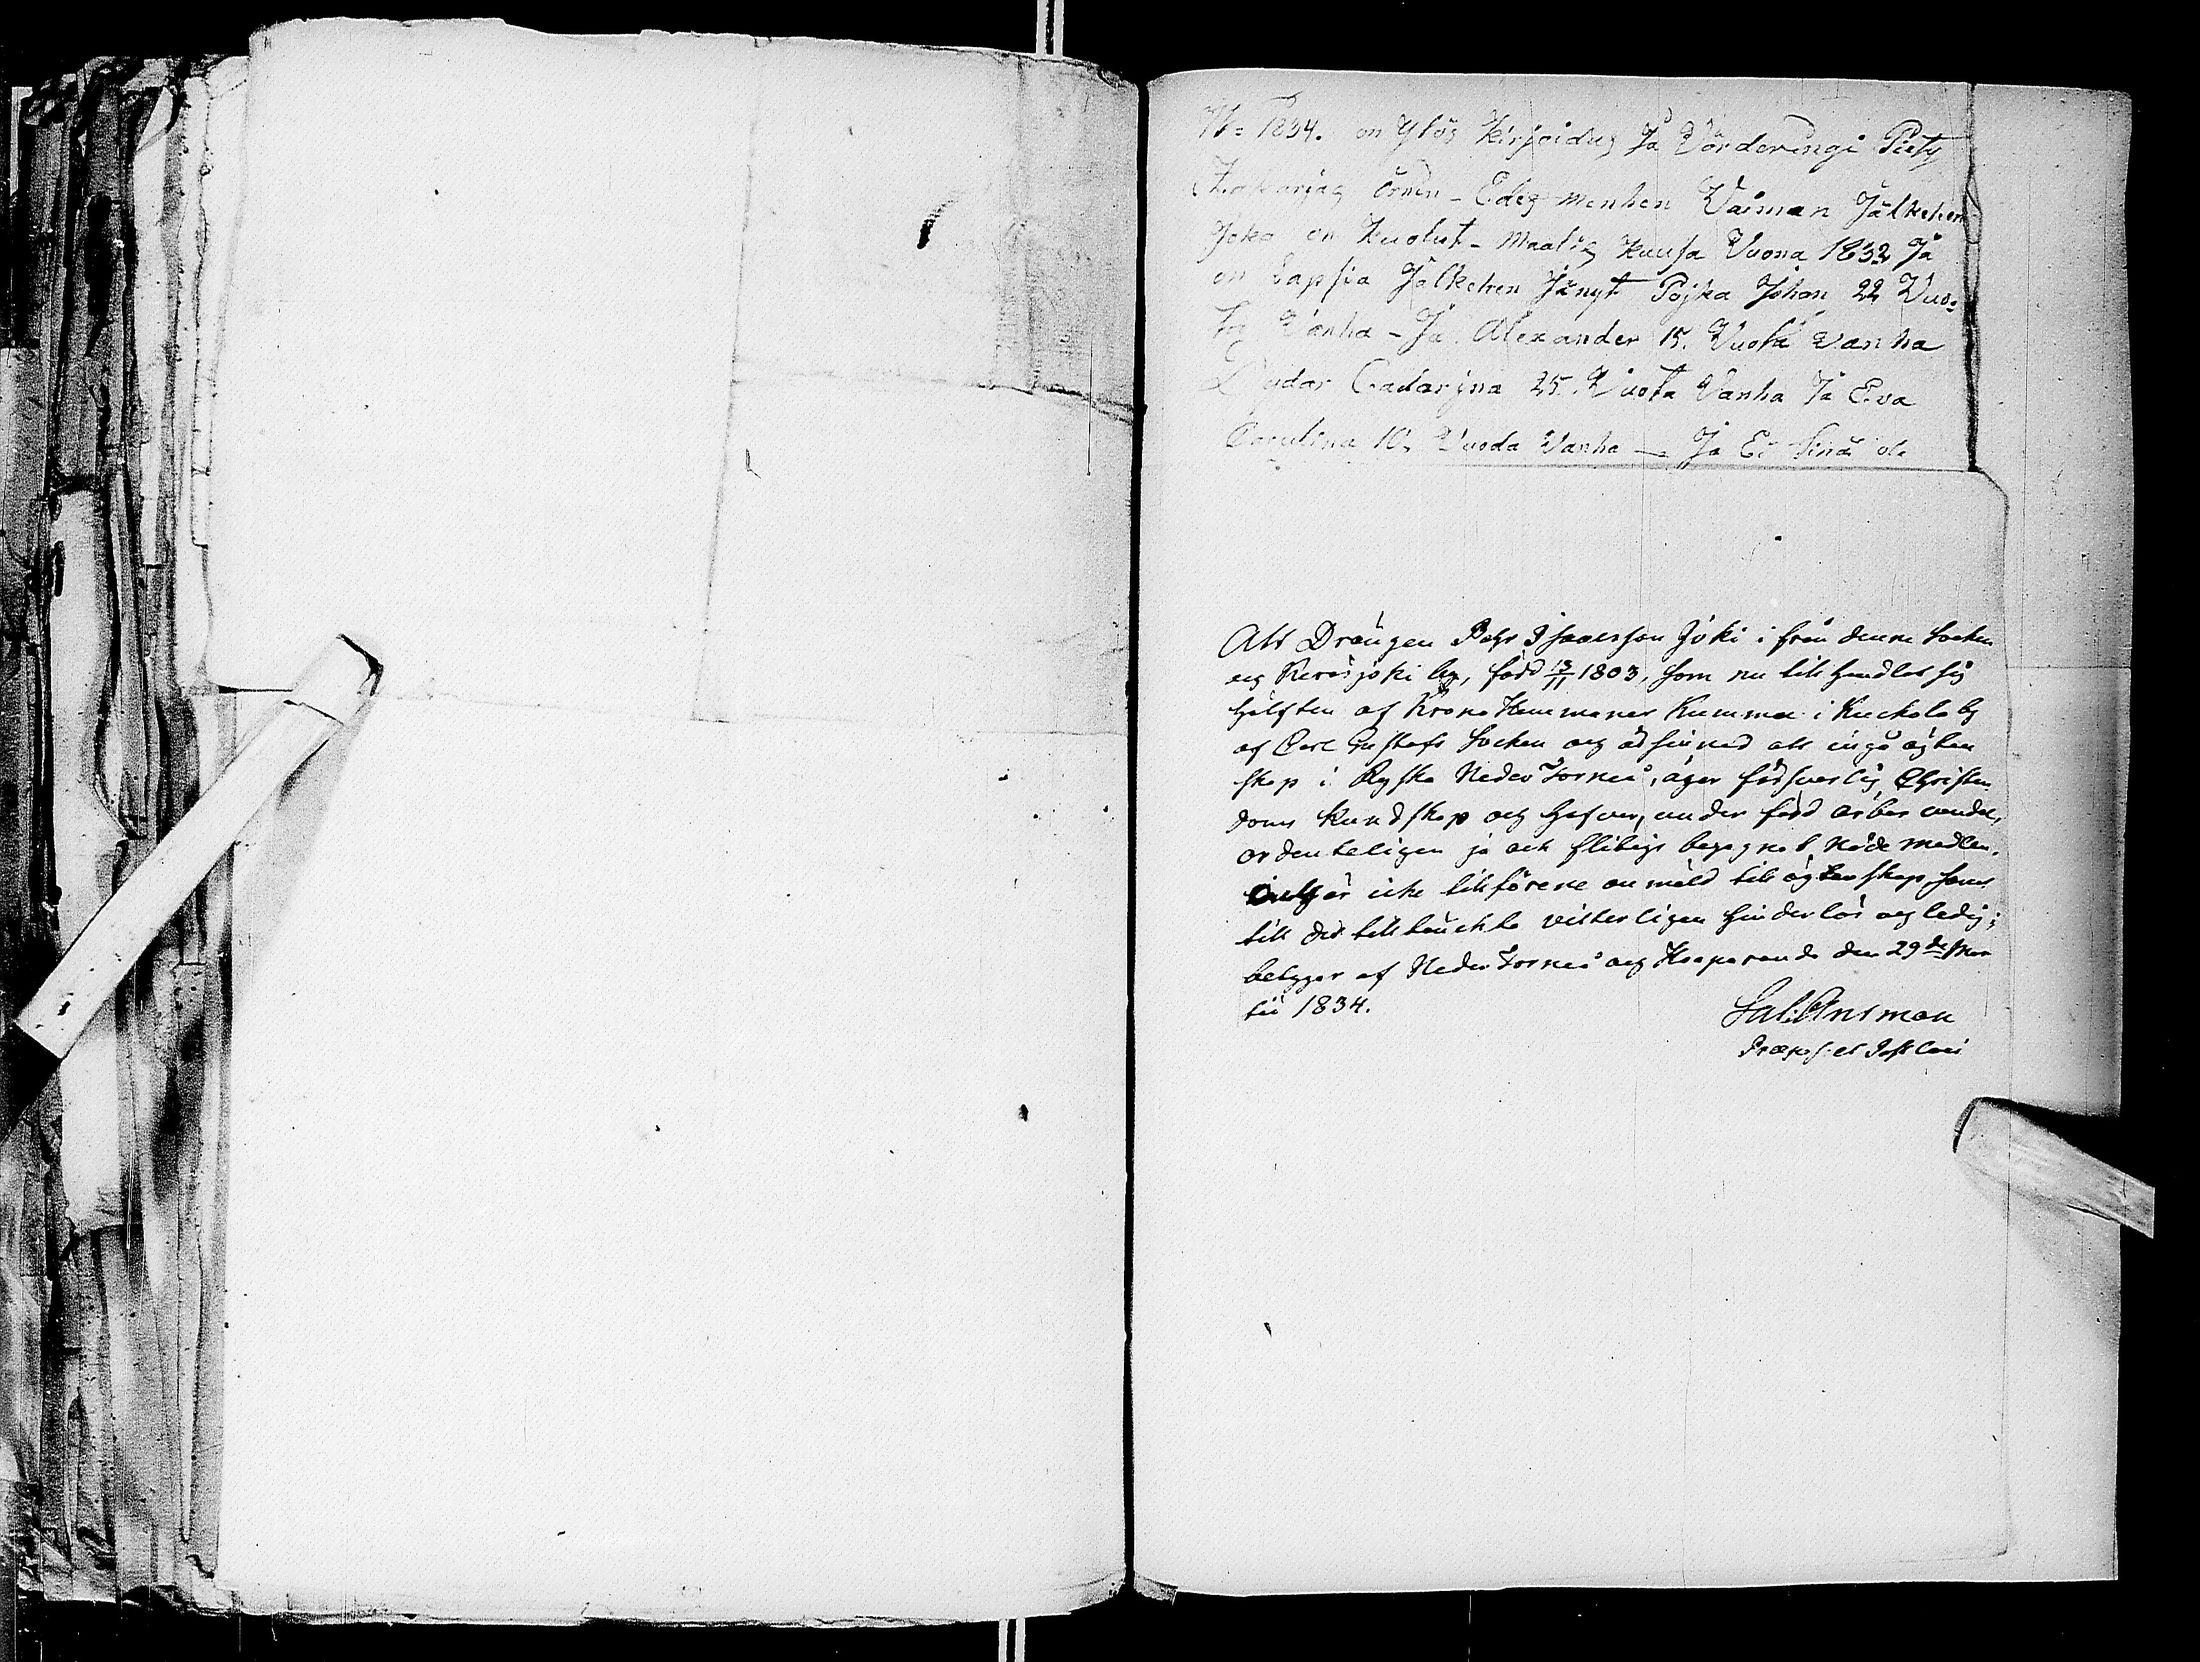 1834. on Ylös Kirjoidug Ja Värderingi Piety
Zakarjag Örnen - Edes menhen Vaiman Jälkehen
Joka on Kuolut - Maalis Kuusa Vuona 1832 Ja
on Lapsia Jälkehen Jänyt Pojka Johan 22 Vuo-
ta Vanha - Ja Alexander 15. Vuota vanha
Dydär Cadarjna 25. Vuota Vanha Ja Eva
Carulina 10. Vuoda Vanha — Ja Ei Sinä ole
Att Drängen Pehr Isaacsson Joki i från denna Socken
och Keräsjoki by, född 13/11 1803, som nu till handlat sig
hälften af Krono Hemmanet Kumma i Kuckola by
af Carl Gustafs Socken och är sinnad att ingå ägten
skap i Ryska Neder Torneå, äger försvarlig Christen
doms Kundskap och hafver, under förd ärbar vandel,
ordenteligen ja och flitigt begagnat Nåde medlen.
är icke tillförene anmäld till ägtenskap samt
till det tilltänckta vitterligen hinderlös och ledig;
betygar af Neder Torneå och Haaparanda den 29de Mar
tii 1834.
Sal: Ansman
Præpos: et Past: loci